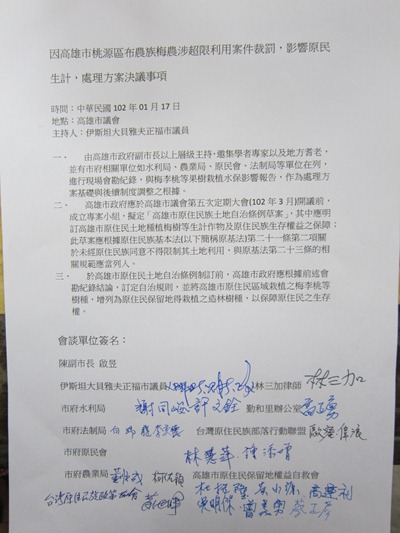 因高雄市桃源區布農族梅農涉超限利用案件裁罰，影響原民
生計，處理方案決議事項
時間：中華民國 102 年 01 月 17 日
地點：高雄市議會
主持人：伊斯坦大貝雅夫正福市議員
一． 由高雄市政府副市長以上層級主持，邀集學者專家以及地方耆老，
並有市府相關單位如水利局、農業局、原民會、法制局等單位在列，
進行現場會勘紀錄，與梅李桃等果樹栽植水保影響報告，作為處理方
案基礎與後續制度調整之根據。
二． 高雄市政府應於高雄市議會第五次定期大會(102 年 3 月)開議前，
成立專案小組，擬定「高雄市原住民族土地自治條例草案」，其中應明
訂高雄市原住民土地種植梅樹等生計作物及原住民族生存權益之保障；
此草案應根據原住民族基本法(以下簡稱原基法)第二十一條第二項關
於未經原住民族同意不得限制其土地利用，與原基法第二十三條的相
關規範應當列入。
三． 於高雄市原住民土地自治條例制訂前，高雄市政府應根據前述會
勘紀錄結論，訂定自治規則，並將高雄市原住民區域栽植之梅李桃等
樹種，增列為原住民保留地得栽植之造林樹種，以保障原住民之生存
權。
會談單位簽名：
陳副市長 啟昱
伊斯坦大貝雅夫正福市議員 林三加律師 林三加
市府水利局 勤和里辦公室
市府法制局 台灣原住民族部落行動聯盟
市府原民會
市府農業局 高雄市原住民保留地權益自救會